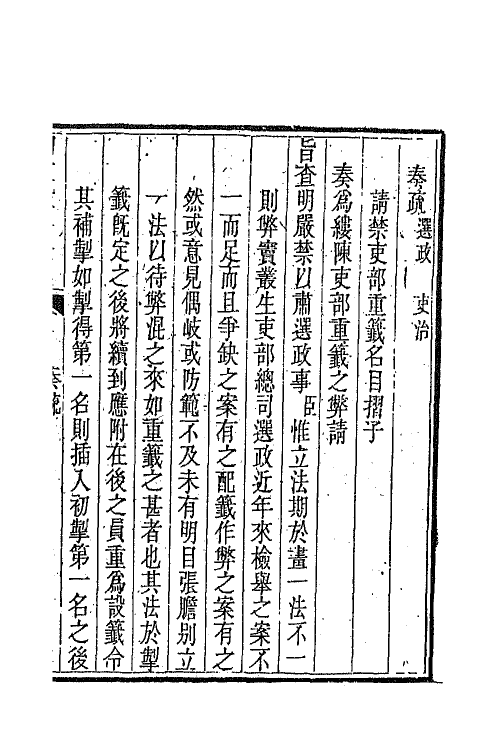 奏疏 選政 吏治
請禁吏部重籤名目摺子
奏爲縷陳吏部重籤之弊請
旨查明嚴禁以肅選政事臣惟立法期於畫一法不一
則弊竇叢生吏部總司選政近年來檢舉之案不
一而足而且爭缺之案有之配籤作弊之案有之
然或意見偶岐或防範不及未有明目張膽別立
一法以待弊混之來如重籤之甚者也其法於掣
籤旣定之後將續到應附在後之員重爲設籤令
其補掣如掣得第一名則插入初掣第一名之後
奏疏